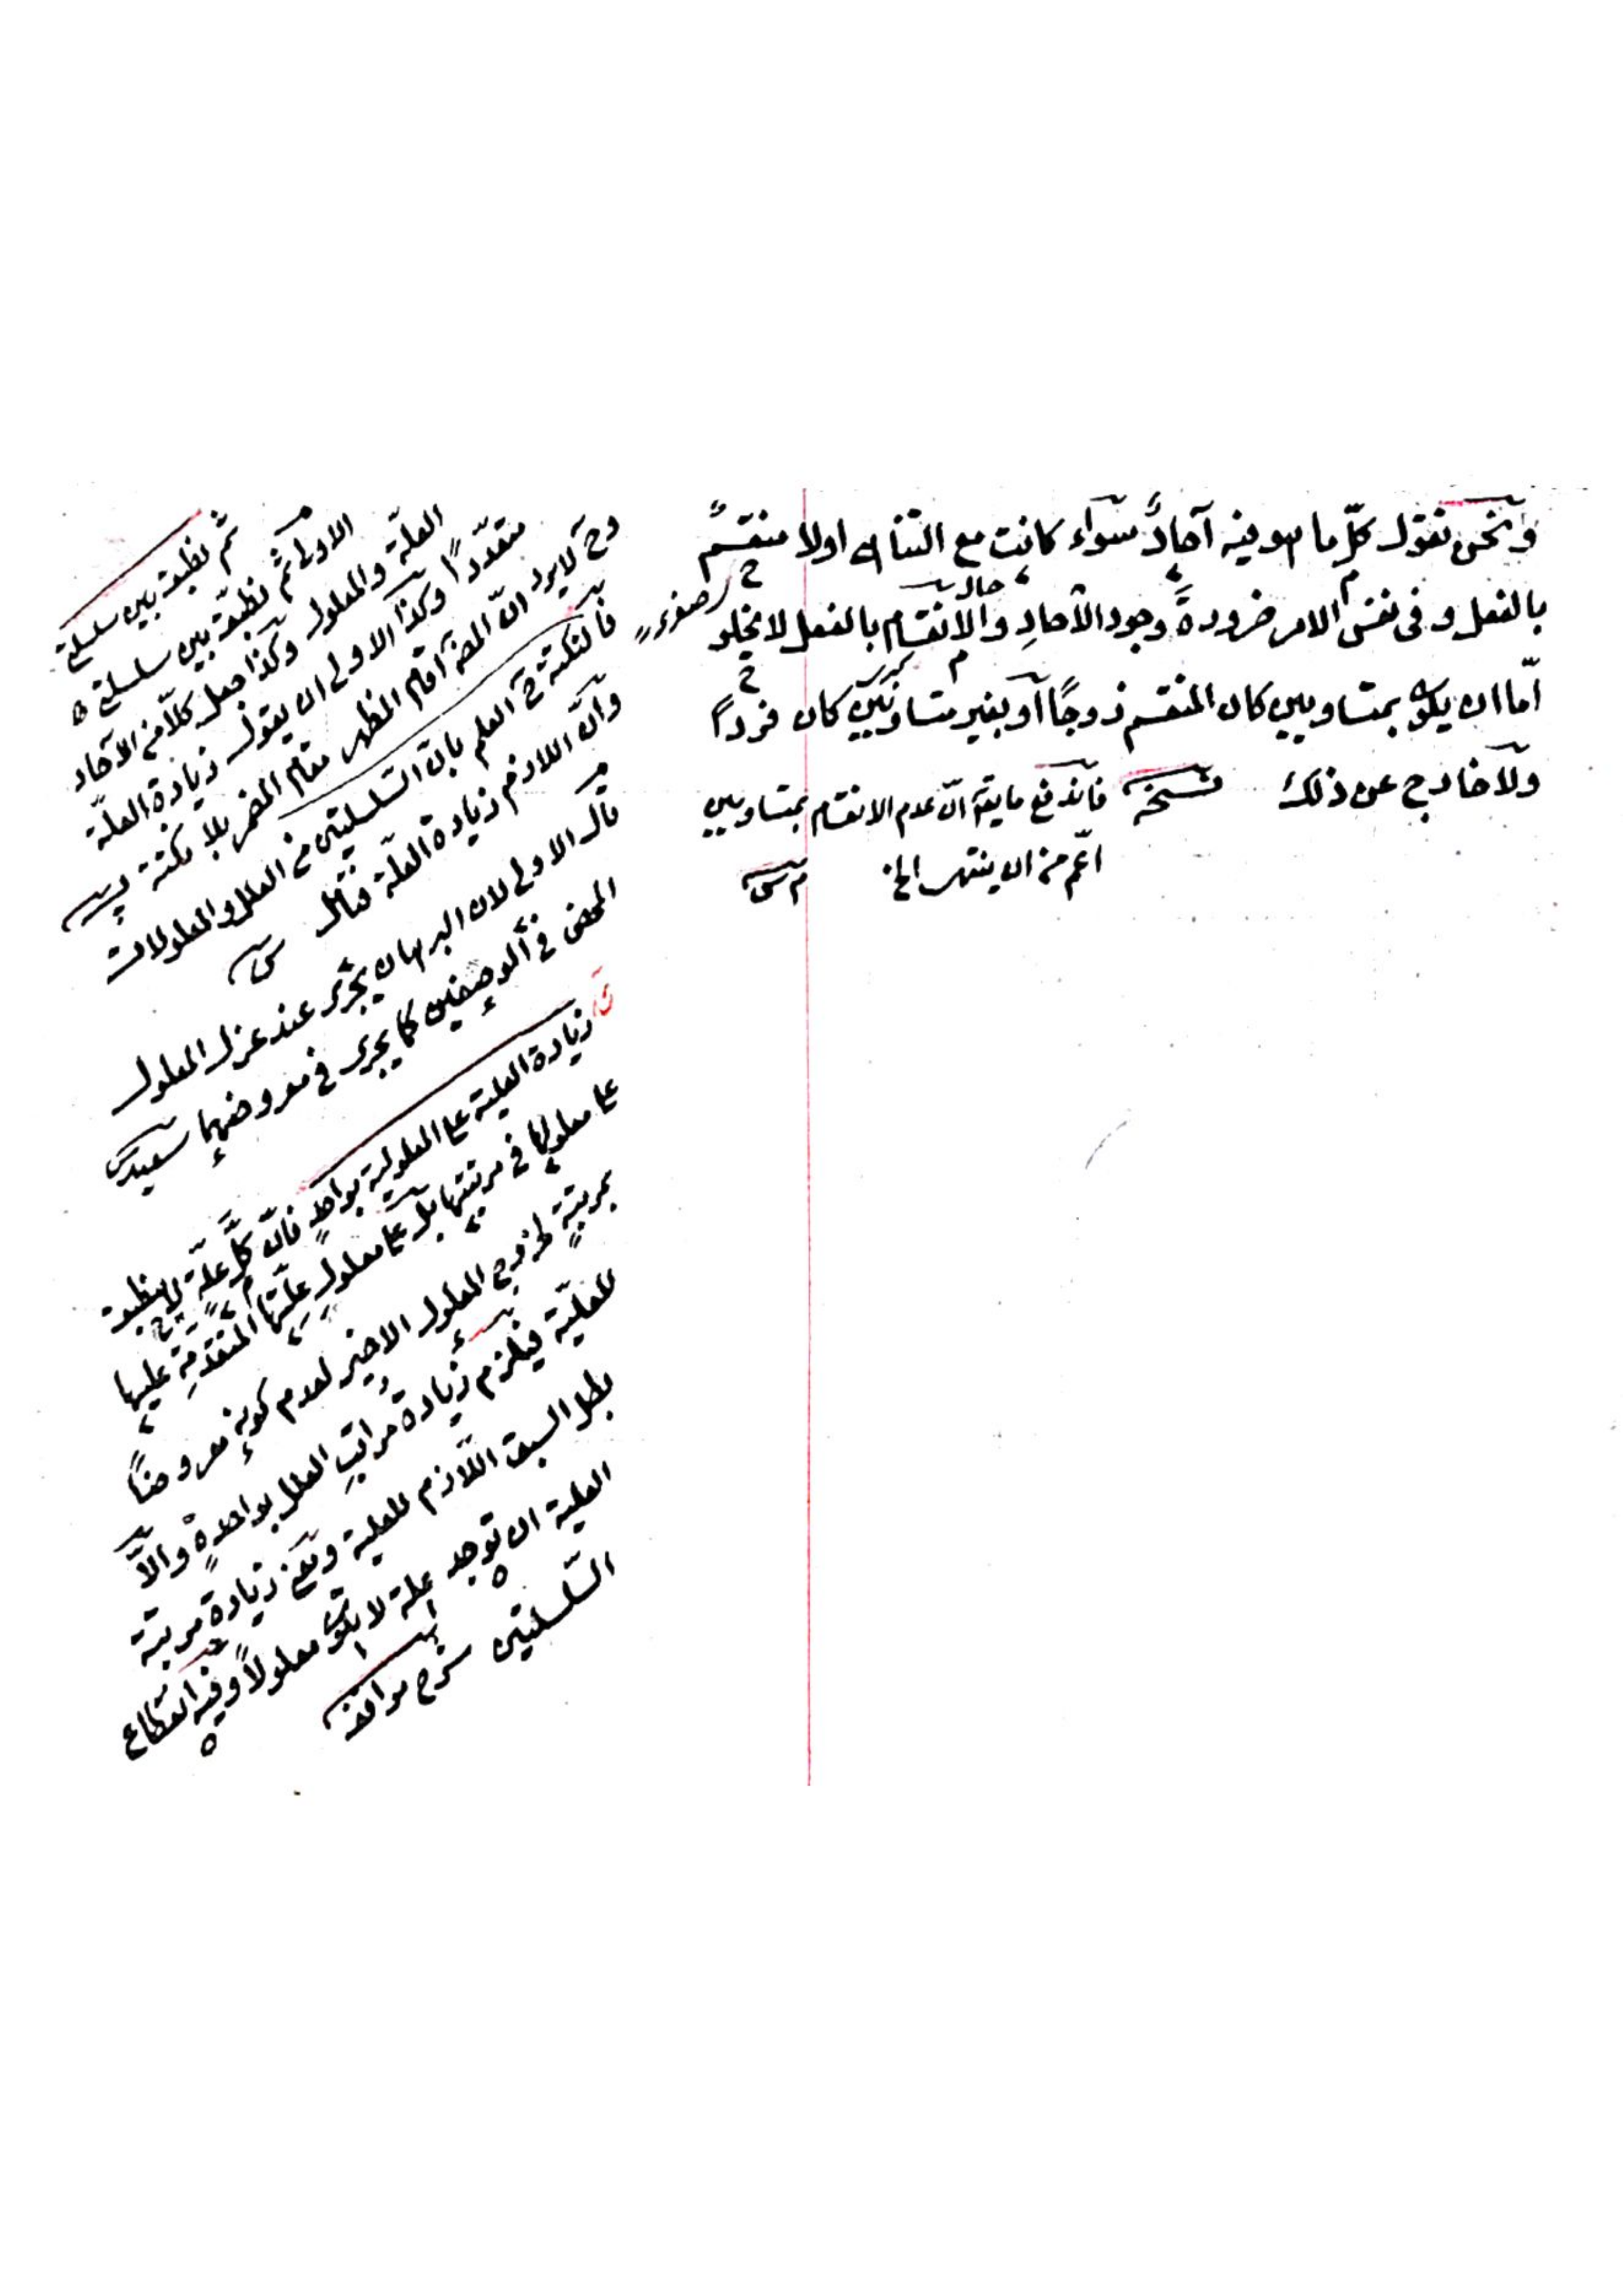 ونحن نقول كلّ ما هو فيه آحادٌ سواء كانت مع التناهى اولا منقسمٌ
بالفعل وفى نفس الامر ضرورةَ وجود الآحادِ والانقسام بالفعل لا يخلو
حال
صغرى
امّا ان يكون بمتساويين كان المنقسم زوجًا أو بغير متساويين كان فردًا
ولا خارج عن ذلك نسخة فاندفع ما يقال انّ عدم الانقسام بمتساويين
اعم من ان ينتهى الخ
ثم نطبق بين سلسلة
الاولى ثم نطبق بين سلسلة
العلة والمعلول وكذا جعل كلّا من الآحاد
متعدّدًا وكذا الاولى ان يقول زيادة العلّة
وح لا يرد انّ المص اقام المظهر مقام المضمر بلا نكتة
فالنكتة ح العلم بان السلسلتين من العلل والمعلولات
وانّ اللازم زيادة العلّة فتأمل
قال الاولى لان البرهان يجرى عند عزل المعلول
المحض فى الوصفين كما يجرى فى معروضهما سعيد
زيادة العلية على المعلولية بواحدٍ فانّ كلّ علّةٍ لا ينطبق
على معلولها فى مرتبتها بل على معلولِ علّتها المتقدمة عليها
بمرتبةٍ لخروج المعلول الاخير لعدم كونه معروضًا
للعلّية فيلزم زيادة مراتب العلل بواحدةٍ والّا
بطل السبق اللّازم للعلية ومعنى زيادة مرتبة
العلية ان توجد علة لا يكون معلولًا وفيه انقطاع
السلسلتين شرح مواقف